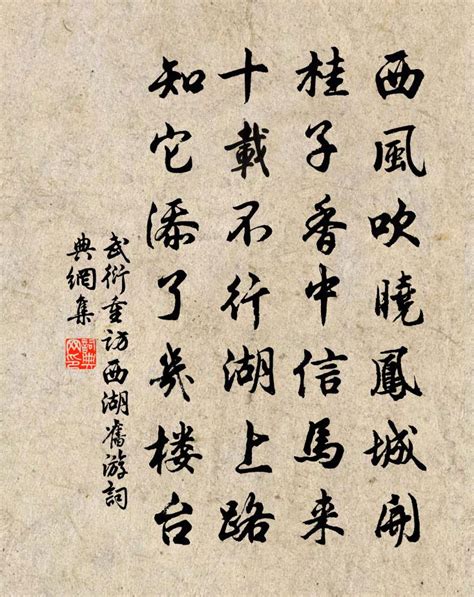 西風吹曉鳳城開
桂子香中信馬来
十載不行湖上路
知它添了幾楼台
武衍重访西湖舊游詞
典網集